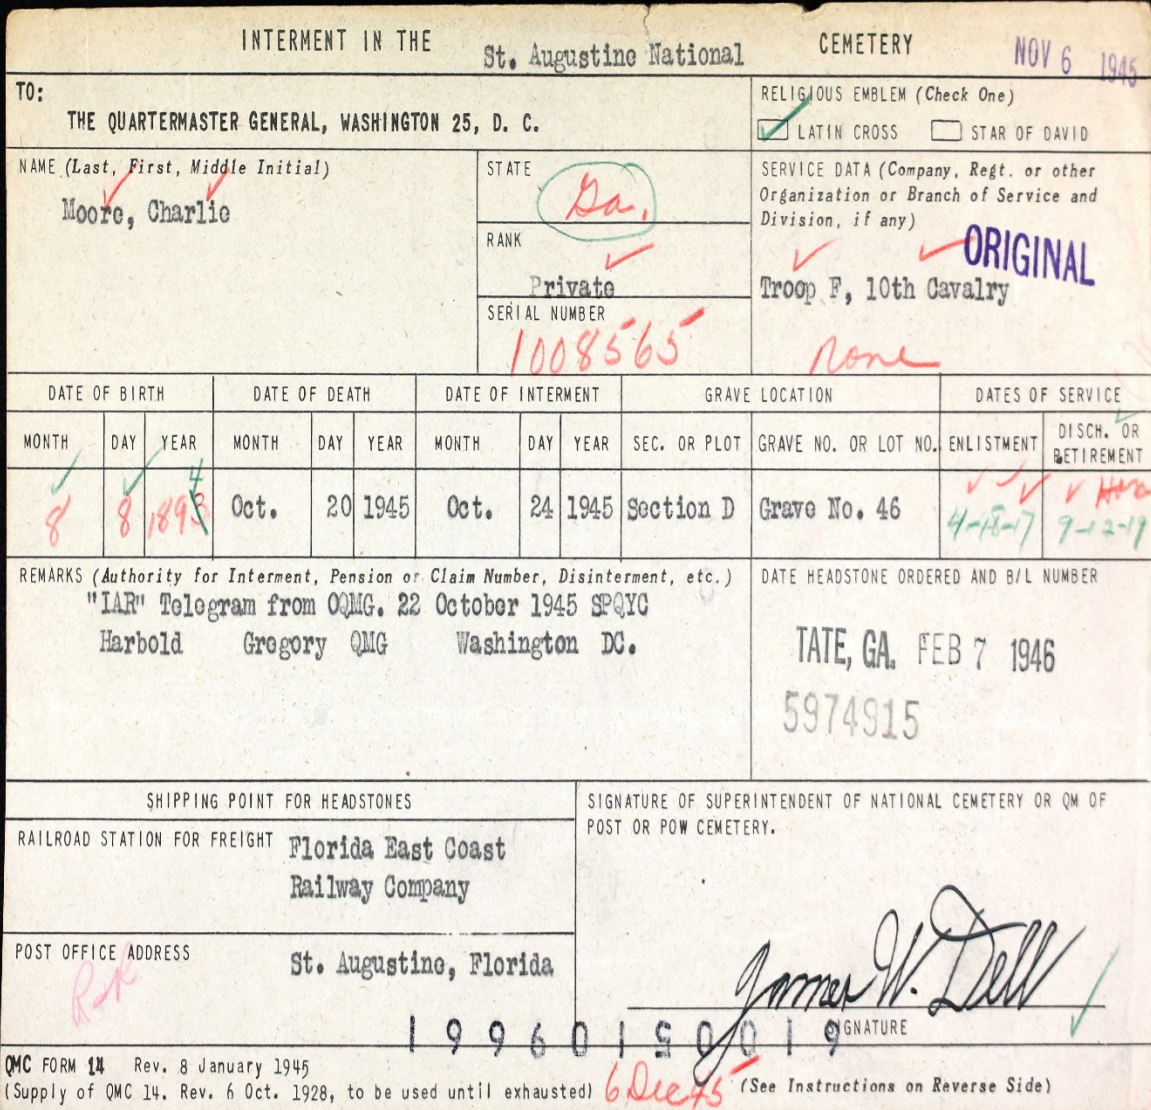 INTERMENT IN THE St. Augustine National CEMETERY NOV 6 1945
TO:
THE QUARTERMASTER GENERAL, WASHINGTON 25, D. C.
RELIGIOUS EMBLEM (Check One)
LATIN CROSS STAR OF DAVID
NAME (Last, First, Middle Initial)
Moore, Charlie
STATE
Ga.
RANK
Private
SERIAL NUMBER
1008565
SERVICE DATA (Company, Regt. or other
Organization or Branch of Service and
Division, if any)
ORIGINAL
Troop F, 10th Cavalry
None
DATE OF BIRTH DATE OF DEATH DATE OF INTERMENT GRAVE LOCATION DATES OF SERVICE
MONTH DAY YEAR MONTH DAY YEAR MONTH DAY YEAR SEC. OR PLOT GRAVE NO. OR LOT NO. ENLISTMENT DISCH. OR
RETIREMENT
4
8 8 1893 Oct. 20 1945 Oct. 24 1945 Section D Grave No. 46 4-18-17 9-12-19
REMARKS (Authority for Interment, Pension or Claim Number, Disinterment, etc.)
"IAR" Telegram from OQMG. 22 October 1945 SPQYC
Harbold Gregory QMG Washington DC.
DATE HEADSTONE ORDERED AND B/L NUMBER
TATE, GA. FEB 7 1946
5974915
SHIPPING POINT FOR HEADSTONES
RAILROAD STATION FOR FREIGHT Florida East Coast
Railway Company
POST OFFICE ADDRESS
St. Augustine, Florida
SIGNATURE OF SUPERINTENDENT OF NATIONAL CEMETERY OR QM OF
POST OR POW CEMETERY.
James W. Dell
SIGNATURE
QMC FORM 14 Rev. 8 January 1945
(Supply of QMC 14. Rev. 6 Oct. 1928, to be used until exhausted) 6 Dec 45 (See Instructions on Reverse Side)